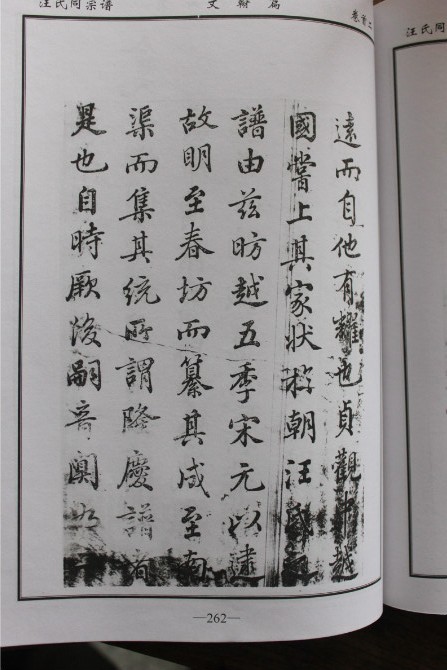 汪氏同宗譜 文翰篇 卷首
汪氏同
遠而自他有耀也貞觀中越
國嘗上其家狀於朝汪
譜由茲昉越五季宋元以逮
故明至春坊而纂其成至南
渠而集其統所謂隆慶譜者
是也自時厥後嗣音闃
—262—